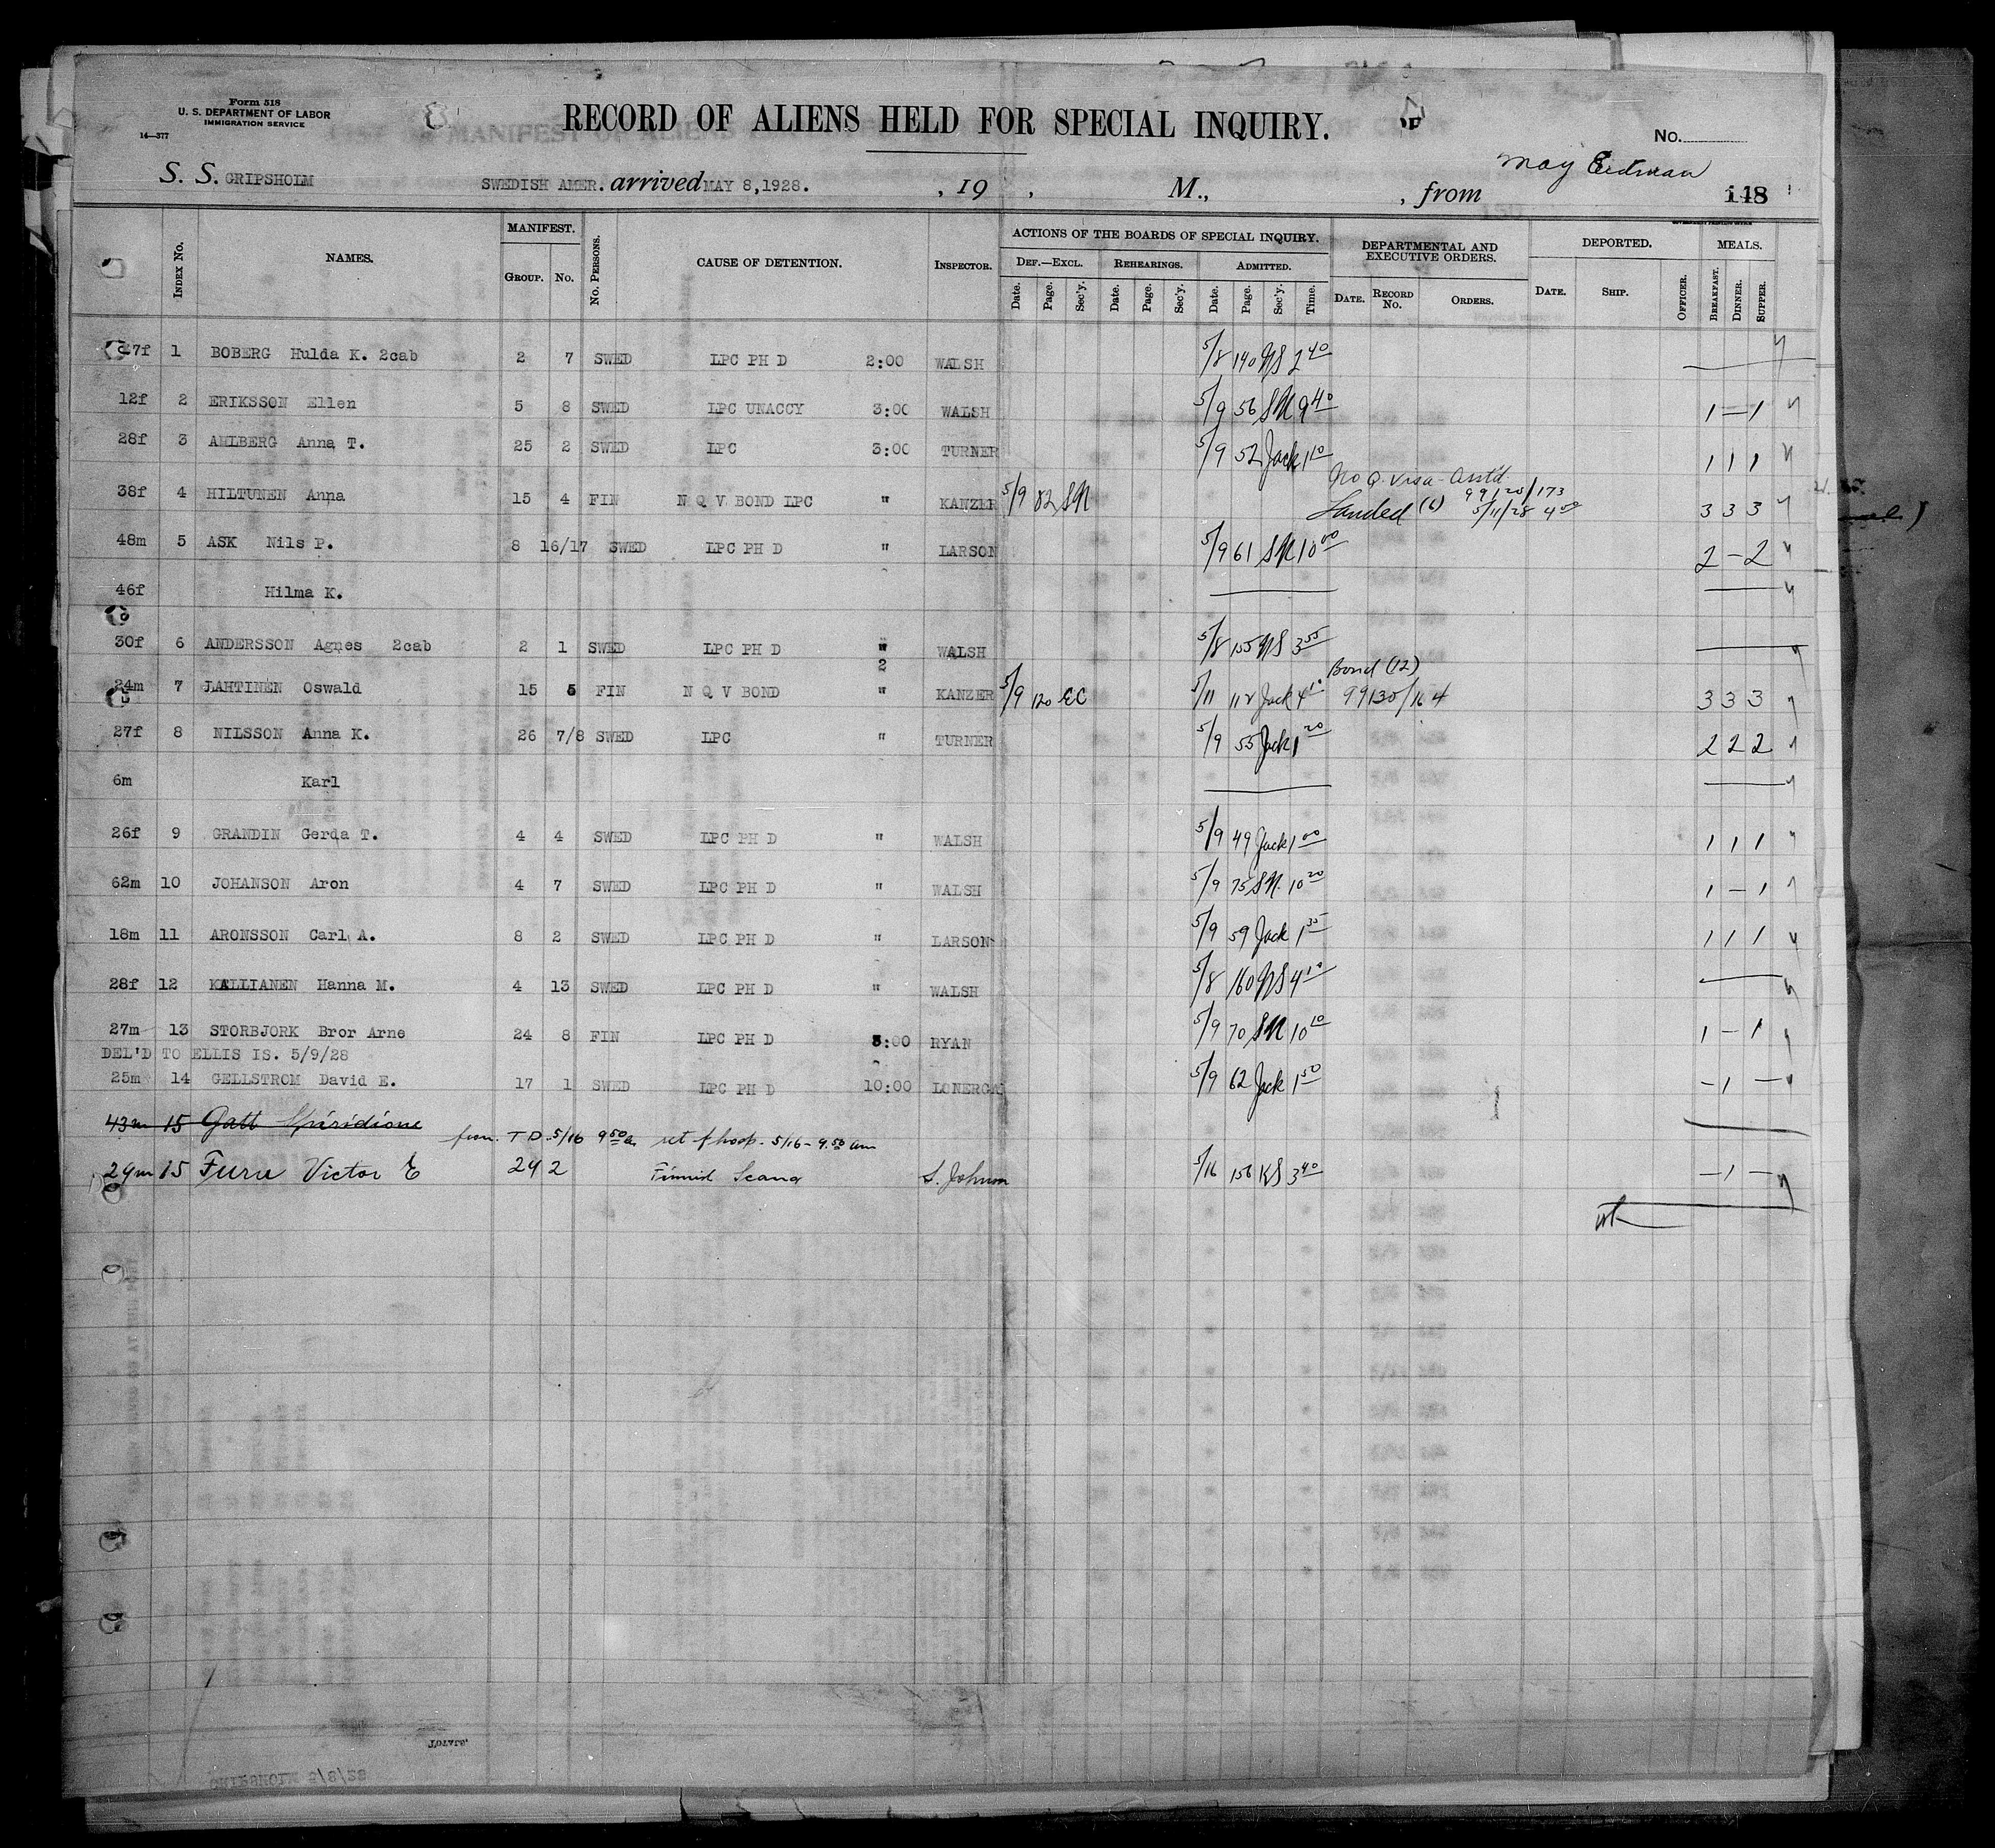 Form 518
U. S. DEPARTMENT OF LABOR
IMMIGRATION SERVICE
14—377
RECORD OF ALIENS HELD FOR SPECIAL INQUIRY.
No.
S. S. GRIPSHOLM SWEDISH AMER. arrived MAY 8,1928. , 19 , M., , from May 148
Index No. NAMES. MANIFEST. GROUP. No. No. PERSONS. CAUSE OF DETENTION. INSPECTOR. ACTIONS OF THE BOARDS OF SPECIAL INQUIRY. DEF.—EXCL. Date. Page. Sec'y. REHEARINGS. Date. Page. Sec'y. ADMITTED. Date. Page. Sec'y. Time. DEPARTMENTAL AND EXECUTIVE ORDERS. DATE. RECORD No. ORDERS. DEPORTED. DATE. SHIP. OFFICER. MEALS. BREAKFAST. DINNER. SUPPER.
27f 1 BOBERG Hulda K. 2cab 2 7 SWED LPC PH D 2:00 WALSH 5/8 140 NS 2 40
12f 2 ERIKSSON Ellen 5 8 SWED LPC UNACCY 3:00 WALSH 5/9 56 SN 9 40 1 — 1
28f 3 AHLBERG Anna T. 25 2 SWED LPC 3:00 TURNER 5/9 52 Jack 1 10 1 1 1
No Q. Visa - 99120/173
38f 4 HILTUNEN Anna 15 4 FIN N Q V BOND LPC " KANZER 5/9 82 SN Landed (6) 5/11/28 4 00 3 3 3
48m 5 ASK Nils P. 8 16/17 SWED LPC PH D " LARSON 5/9 61 SN 10 00 2 — 2
46f Hilma K.
30f 6 ANDERSSON Agnes 2cab 2 1 SWED LPC PH D " WALSH 5/8 155 NS 3 55
2 Bond (12)
24m 7 LAHTINEN Oswald 15 5 FIN N Q V BOND " KANZER 5/9 120 EC 5/11 112 Jack 4 10 99130/164 3 3 3
27f 8 NILSSON Anna K. 26 7/8 SWED LPC " TURNER 5/9 55 Jack 1 20 2 2 2
6m Karl
26f 9 GRANDIN Gerda T. 4 4 SWED LPC PH D " WALSH 5/9 49 Jack 1 00 1 1 1
62m 10 JOHANSON Aron 4 7 SWED LPC PH D " WALSH 5/9 75 SN 10 20 1 — 1
18m 11 ARONSSON Carl A. 8 2 SWED LPC PH D " LARSON 5/9 59 Jack 1 35 1 1 1
28f 12 KALLIANEN Hanna M. 4 13 SWED LPC PH D " WALSH 5/8 160 NS 4 10
27m 13 STORBJORK Bror Arne 24 8 FIN LPC PH D 3:00 RYAN 5/9 70 SN 10 10 1 — 1
DEL'D TO ELLIS IS. 5/9/28
25m 14 GELLSTROM David E. 17 1 SWED LPC PH D 10:00 LONERGA 5/9 62 Jack 1 50 — 1 —
43m 15 Gatt Spiridione
from T D. 5/16 9 50 a ret f hosp. 5/16 - 9.50 am
29m 15 Furu Victor E 24 2 S. Johnson 5/16 156 KS 3 40 — 1 —
TOTALS.
GRIPSHOLM 5/8/28